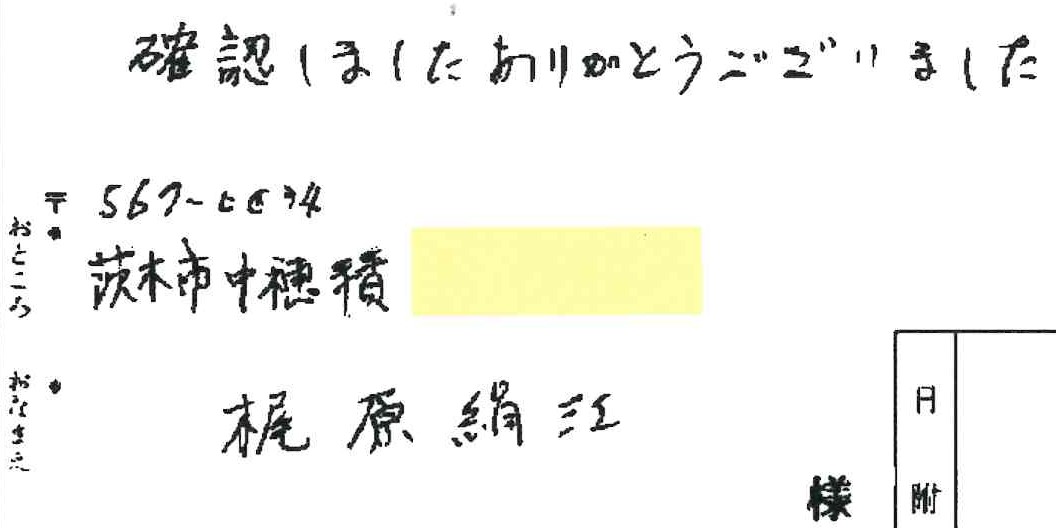 確認しましたありがとうございました
〒 567-0034
おところ
茨木市中穂積
おなまえ
梶原絹江
様
日附